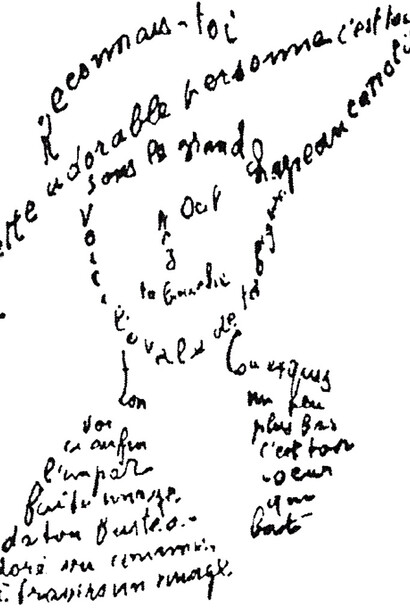 Reconnais-toi
adorable personne c'est toi
sous le grand chapeau canotier
Oeil
Nez
La bouche
Voici l'ovale de ta figure
Ton
cou exquis
Voici enfin
l'imparfaite image
de ton buste
adoré vu comme
à travers un nuage
un peu
plus bas
c'est ton
coeur
qui
bat